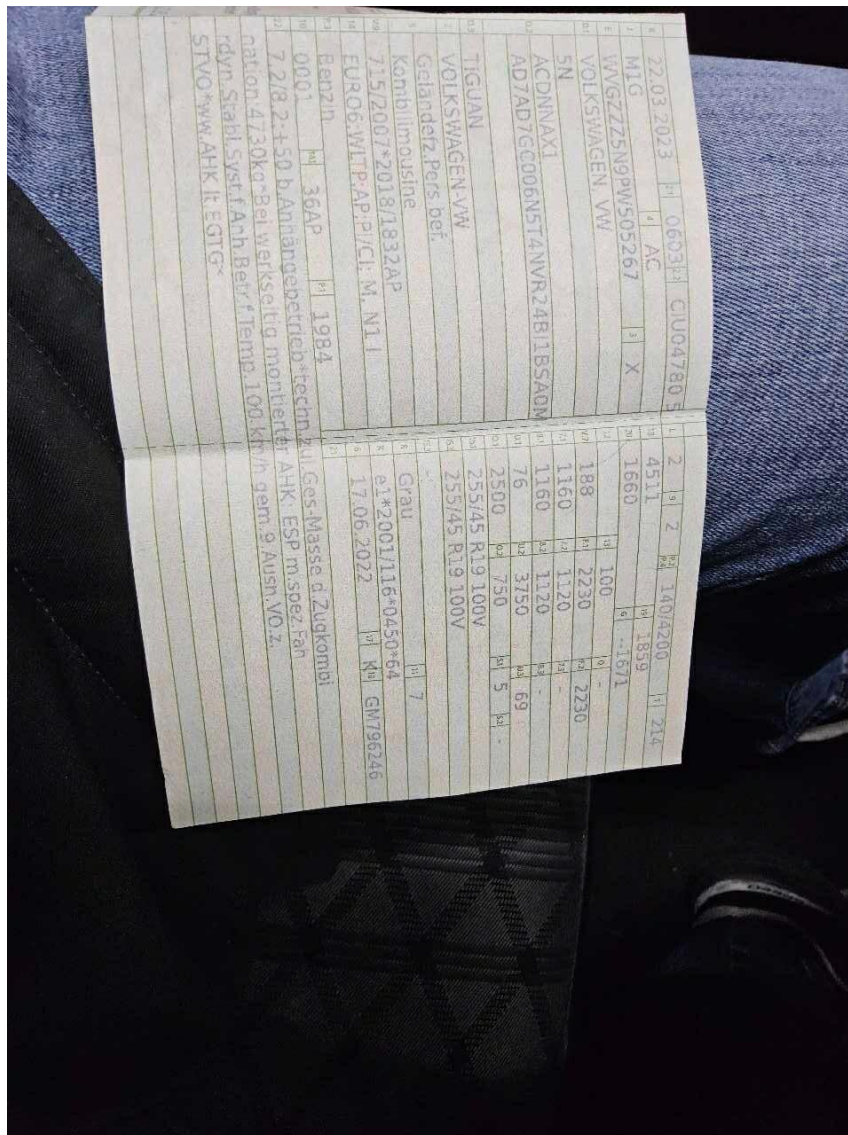 B 22.03.2023 2.1 0603 2.2 CIU04780 5
J M1G 4 AC
E WVGZZZ5N9PW505267 3 X
D.1 VOLKSWAGEN, VW
5N
D.2 ACDNNAX1
AD7AD7GC006N5T4NVR24BI1BSA0N
D.3 TIGUAN
2 VOLKSWAGEN-VW
5 Geländefz.Pers.bef.
Kombilimousine
V.9 715/2007*2018/1832AP
14 EURO6;WLTP;AP;PI/CI; M, N1 I
P.3 Benzin
10 0001 14.1 36AP P.1 1984
22 7.2/8.2:+50 b.Anhängebetrieb*techn.zul.Ges-Masse d.Zugkombi
nation:4730kg*Bei werkseitig montierter AHK: ESP m.spez.Fah
rdyn.Stabi.Syst.f.Anh.Betr.f.Temp.100 km/h gem.9.Ausn.VO.z.
STVO*ww.AHK lt.EGTG*
L 2 9 2 P.2 P.4 140/4200 T 214
18 4511 19 1859
20 1660 G -1671
12 - 13 100 Q -
V.7 188 F.1 2230 F.2 2230
7.1 1160 7.2 1120 7.3 -
8.1 1160 8.2 1120 8.3 -
U.1 76 U.2 3750 U.3 69
O.1 2500 O.2 750 S.1 5 S.2 -
15.1 255/45 R19 100V
15.2 255/45 R19 100V
15.3 -
R Grau 11 7
K e1*2001/116*0450*64
6 17.06.2022 17 K 16 GM796246
21